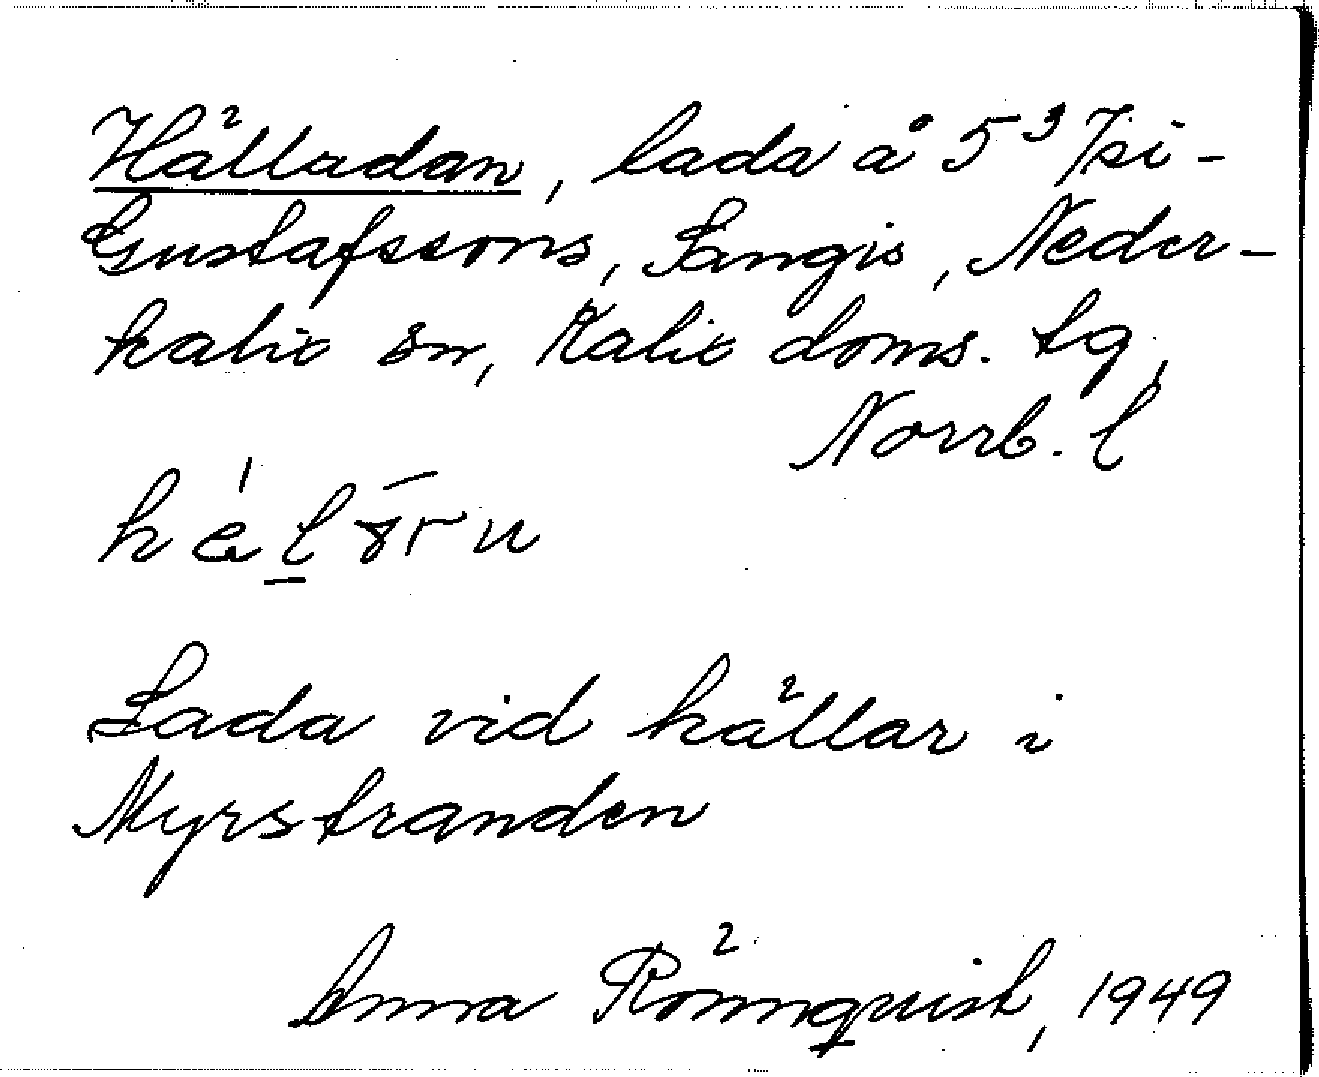 Hälladan, lada å 5³ Isi-
Gustafssons, Sangis, Neder-
kalix sn, Kalix doms. tg,
Norrb. l
Lada vid hällar i
Myrstranden
Anna Rönnquist, 1949